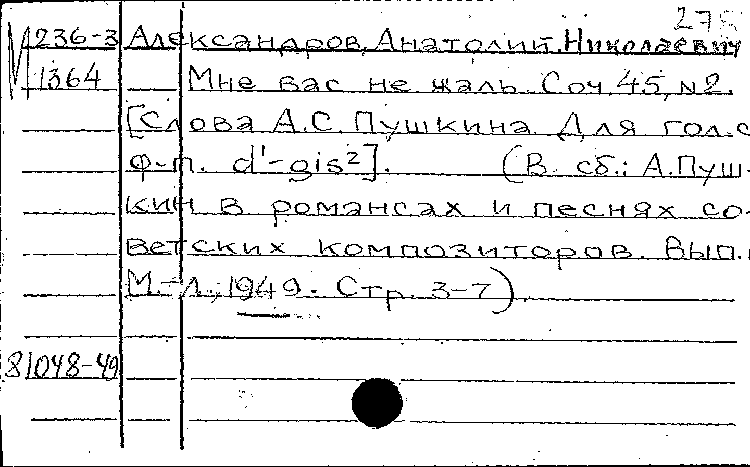 27
М 236-3 Александров, Анатолий Николаевич
1364 Мне вас не жаль. Соч. 45, №2.
[Слова А.С. Пушкина. Для гол. с
ф-п. d'-gis²]. (В сб.: А.Пуш-
кин в романсах и песнях со-
ветских композиторов. Вып.
М.-Л., 1949. Стр. 3-7).
81048-49